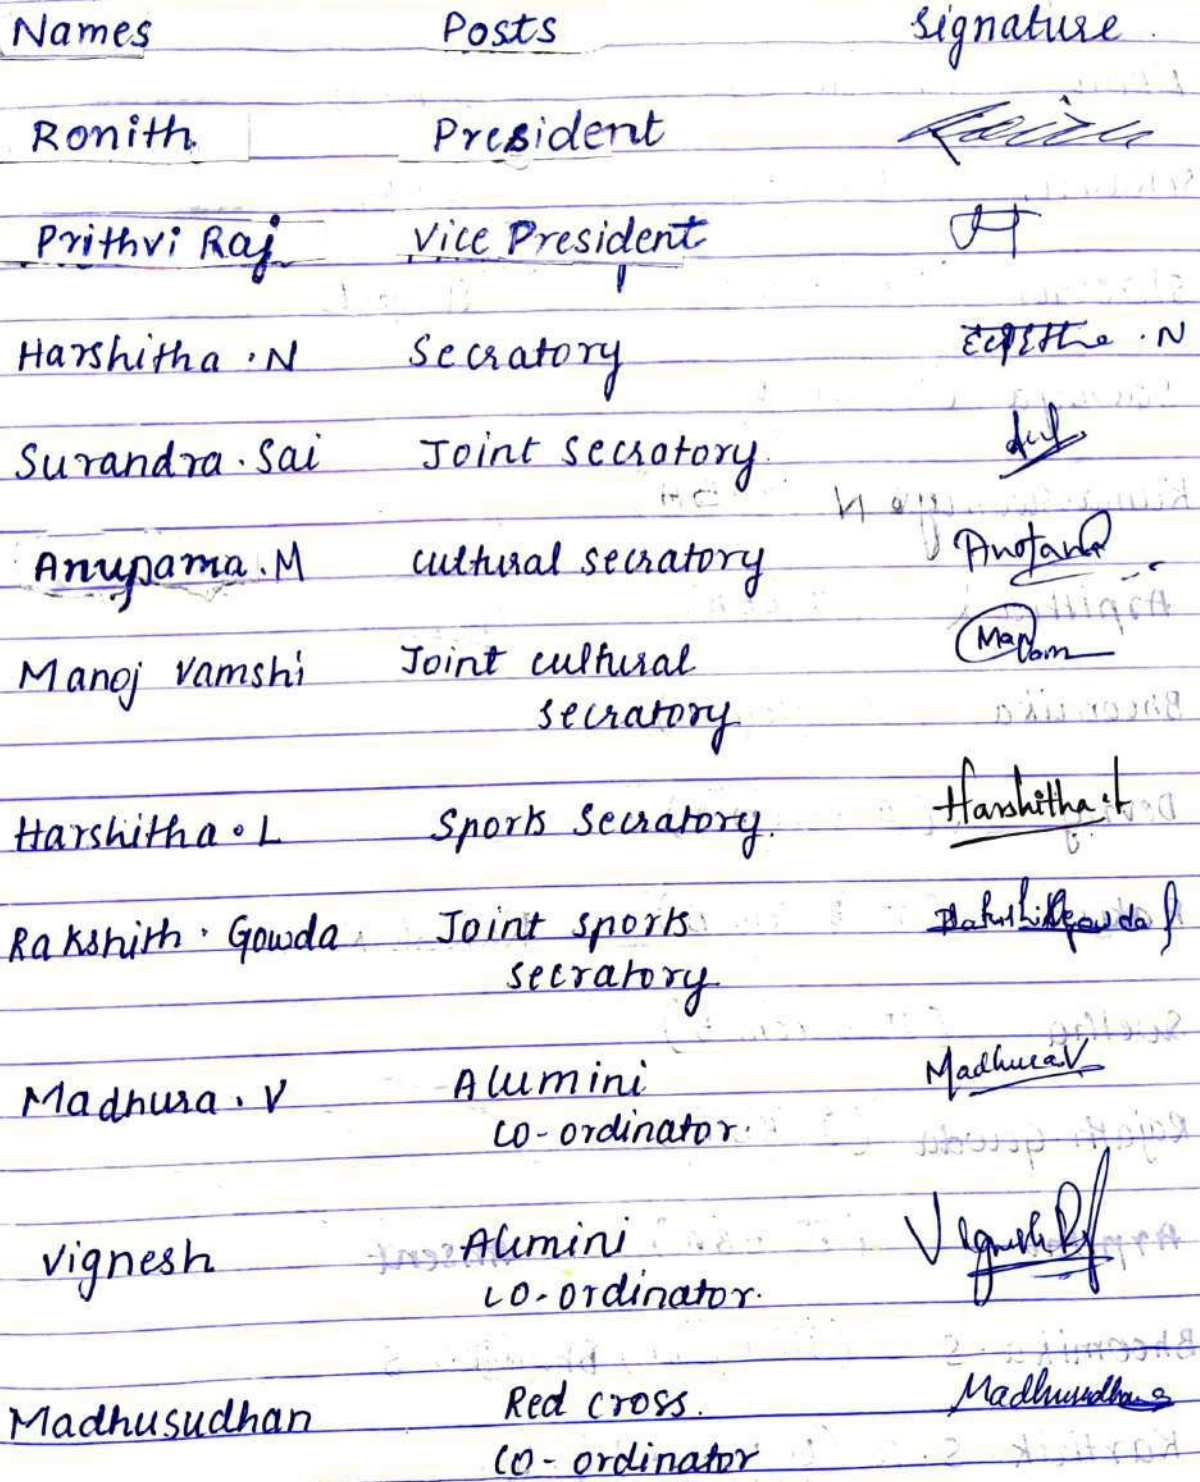 Names Posts Signature
Ronith President
Prithvi Raj Vice President
Harshitha . N Secratory
Surandra . Sai Joint secratory.
Anupama . M cultural secratory
Manoj Vamshi Joint cultural
secratory
Harshitha . L Sports Secratory. Harshitha . L
Rakshith . Gowda Joint sports
secratory
Madhura . V Alumini Madhura V
co-ordinator.
Vignesh Alumini
co-ordinator.
Madhusudhan Red cross. Madhusudhan
co-ordinator